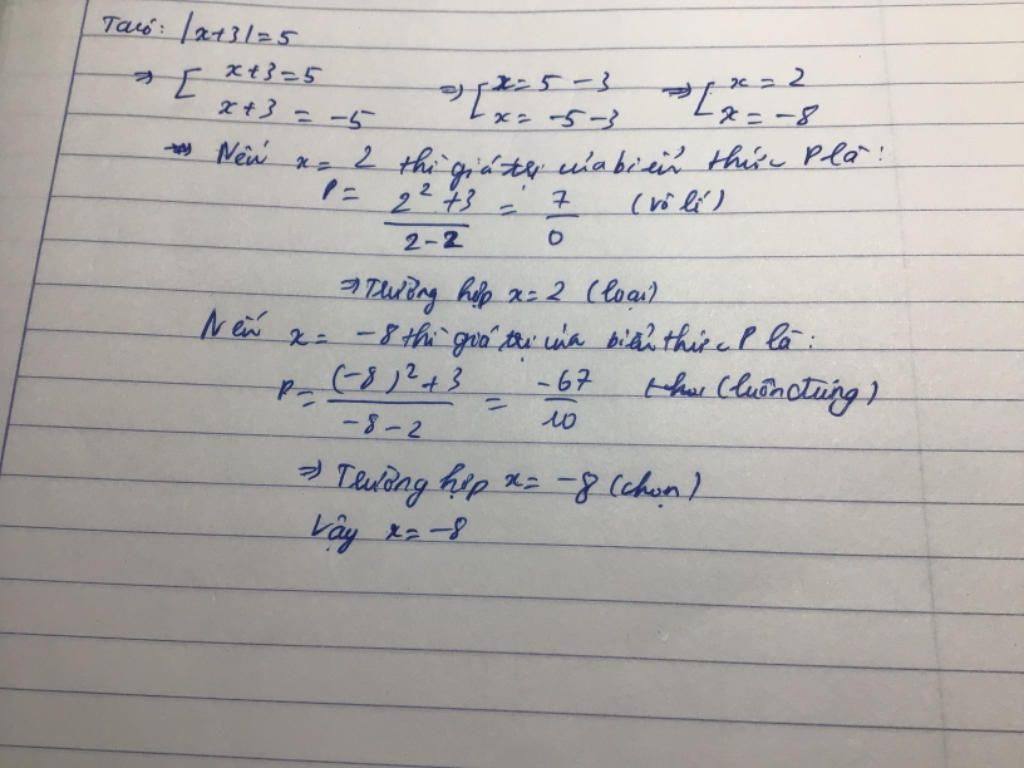 Ta có: |x+3|=5
=> [ x+3=5 => [ x=5-3 => [ x=2
x+3=-5 x=-5-3 x=-8
=> Nếu x=2 thì giá trị của biểu thức P là:
P= (2²+3)/(2-2) = 7/0 (vô lí)
=> Trường hợp x=2 (loại)
Nếu x=-8 thì giá trị của biểu thức P là:
P= ((-8)²+3)/(-8-2) = -67/10 (luôn đúng)
=> Trường hợp x=-8 (chọn)
Vậy x=-8